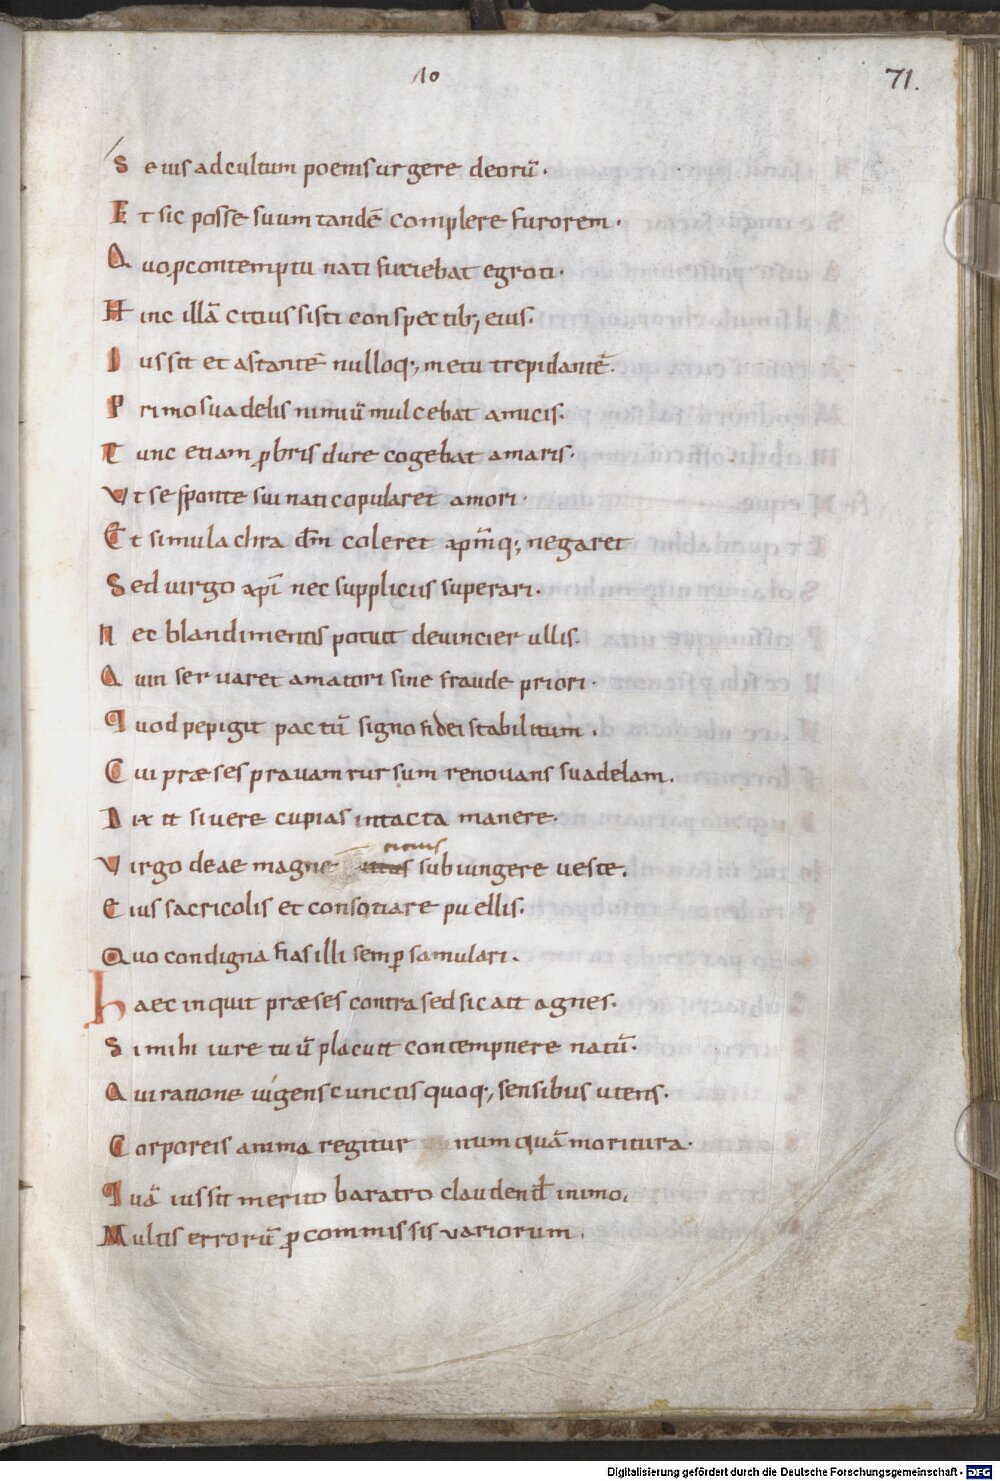 10
71.
S eius ad cultum poenis urgere deorū.
E t sic posse suum tandē complere furorem.
Q uo ꝑ contemptu nati sutiebat egroti.
H inc illā citius sisti conspectib; eius.
I ussit et astantē nulloq; metu trepidantē.
P rimo suadelis nimiū mulcebat amicis.
T unc etiam ꝓbris dure cogebat amaris.
V t se sponte sui nati copularet amori.
E t simulachra dm̄ coleret xp̄mq; negaret
S ed uirgo xp̄i nec suppliciis superari.
N ec blandimentis potuit deuincier ullis.
Q uin seruaret amatori sine fraude priori.
Q uod pepigit pactū signo fidei stabilitum.
C ui præses prauam rursum renouans suadelam.
D ixit si uere cupias intacta manere.
citius
V irgo deae magne subiungere uestę.
E ius sacricolis et consotiare puellis.
Q uo condigna fias illi semꝑ famulari.
H aec inquit præses contra sed sic ait agnes.
S i mihi iure tuū placuit contempnere natū.
Q ui ratione uigens cunctis quoq; sensibus utens.
C orporeis anima regitur numquā moritura.
Q uā iussit merito baratro claudend̄ in imo.
M ultis errorū ꝓ commissis uariorum.
Digitalisierung gefördert durch die Deutsche Forschungsgemeinschaft - DFG